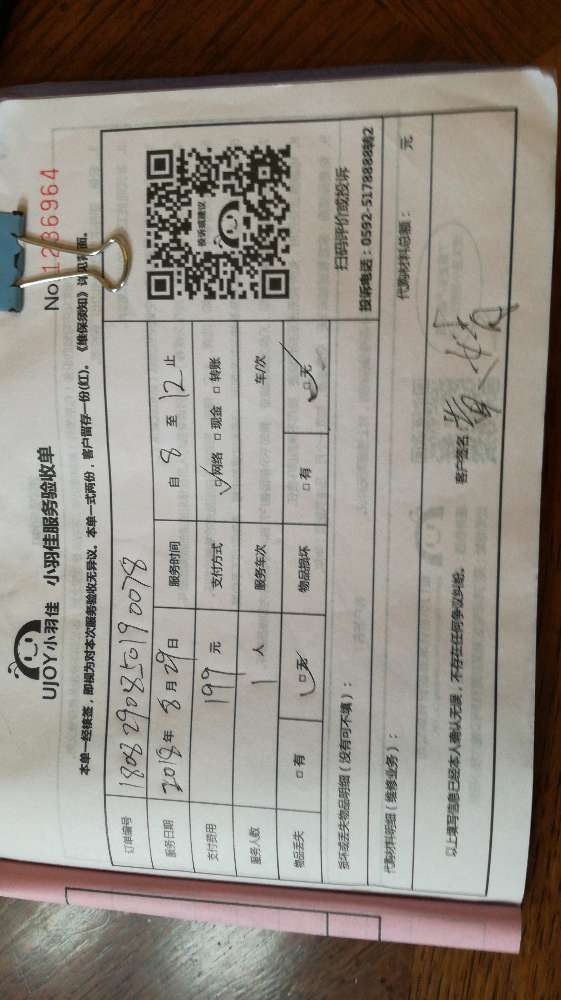 UJOY小羽佳 小羽佳服务验收单
No.1236964
本单一经核签，即视为对本次服务验收无异议。本单一式两份，客户留存一份(红)。《维保须知》详见背面。
订单编号 180829085019 0078
服务日期 2018年 8月 29日 服务时间 自 8 至 12 止
支付费用 199 元 支付方式 □网络 □现金 □转账
服务人数 1 人 服务车次 车/次
物品丢失 □有 □无 物品损坏 □有 □无
投诉或建议
扫码评价或投诉
投诉电话：0592-5178888转2
损坏或丢失物品明细（没有可不填）：
代购材料明细（维修业务）： 代购材料总额： 元
以上填写信息已经本人确认无误，不存在任何争议纠纷。 客户签名